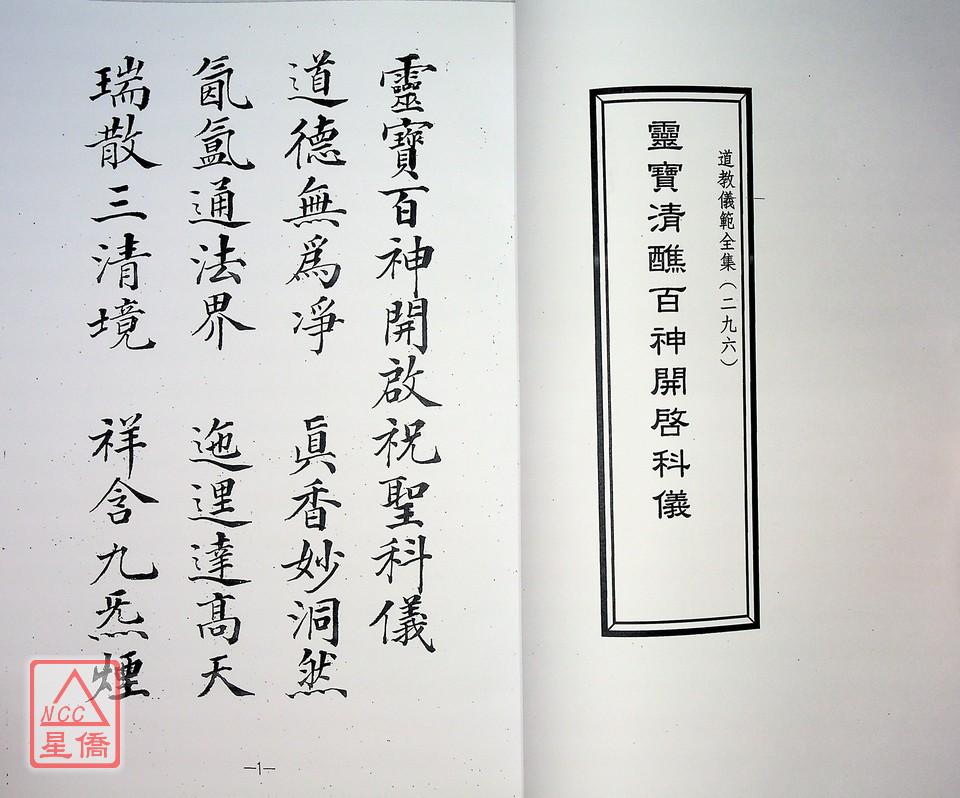 道教儀範全集（二九六）
靈寶清醮百神開啓科儀
靈寶百神開啟祝聖科儀
道德無為凈　真香妙洞然
氤氳通法界　迤逦達高天
瑞散三清境　祥含九炁煙
—1—
NCC
星僑